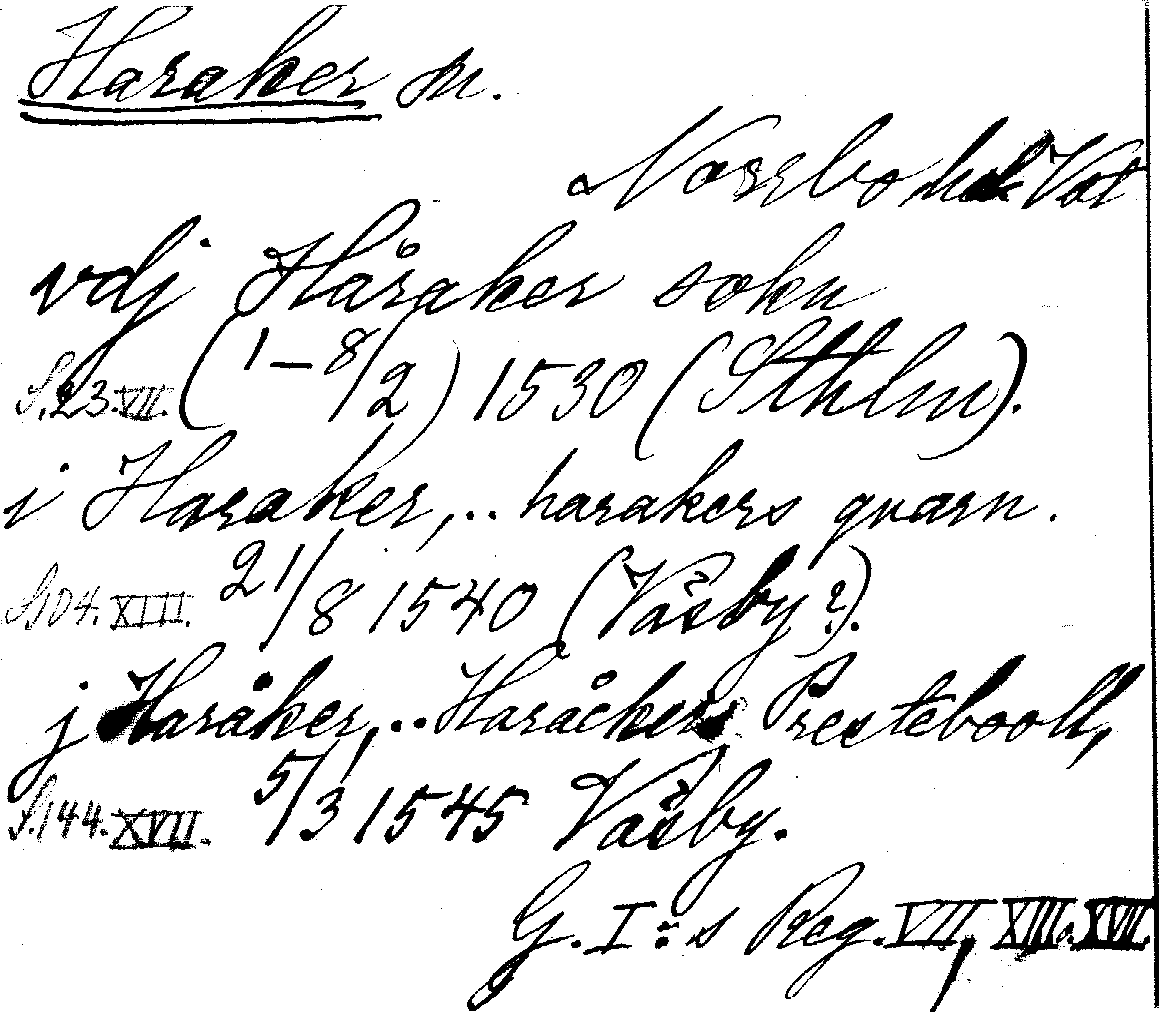 Haraker sn.
Norrbo hd. Vstm
vdj Håraker sokn
S.23.VII. (1–8/2) 1530 (Sthlm).
i Haraker,.. harakers qvarn.
S.104.XIII. 21/8 1540 (Väsby?).
j Haråker,.. Haråckers Prestebooll,
S.144.XVII. 5/3 1545 Väsby.
G. I:s Reg. VII, XIII o. XVII.